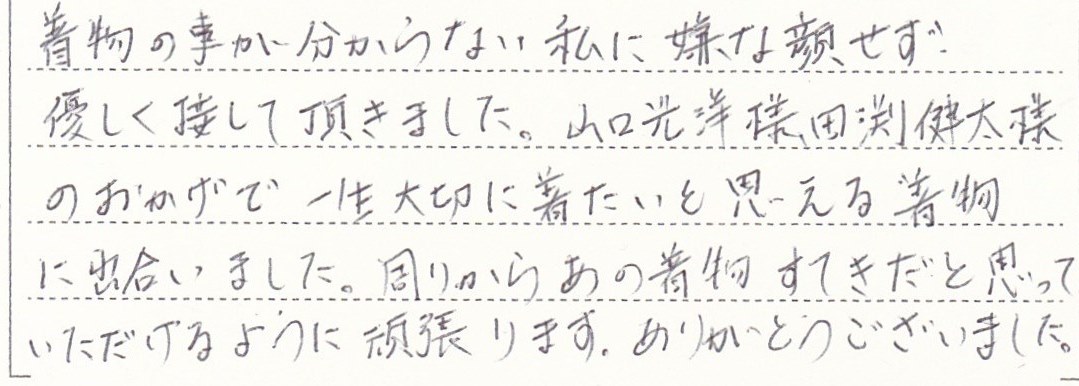 着物の事が分からない私に嫌な顔せず
優しく接して頂きました。山口光洋様、田渕健太様
のおかげで一生大切に着たいと思える着物
に出合いました。周りからあの着物すてきだと思って
いただけるように頑張ります。ありがとうございました。